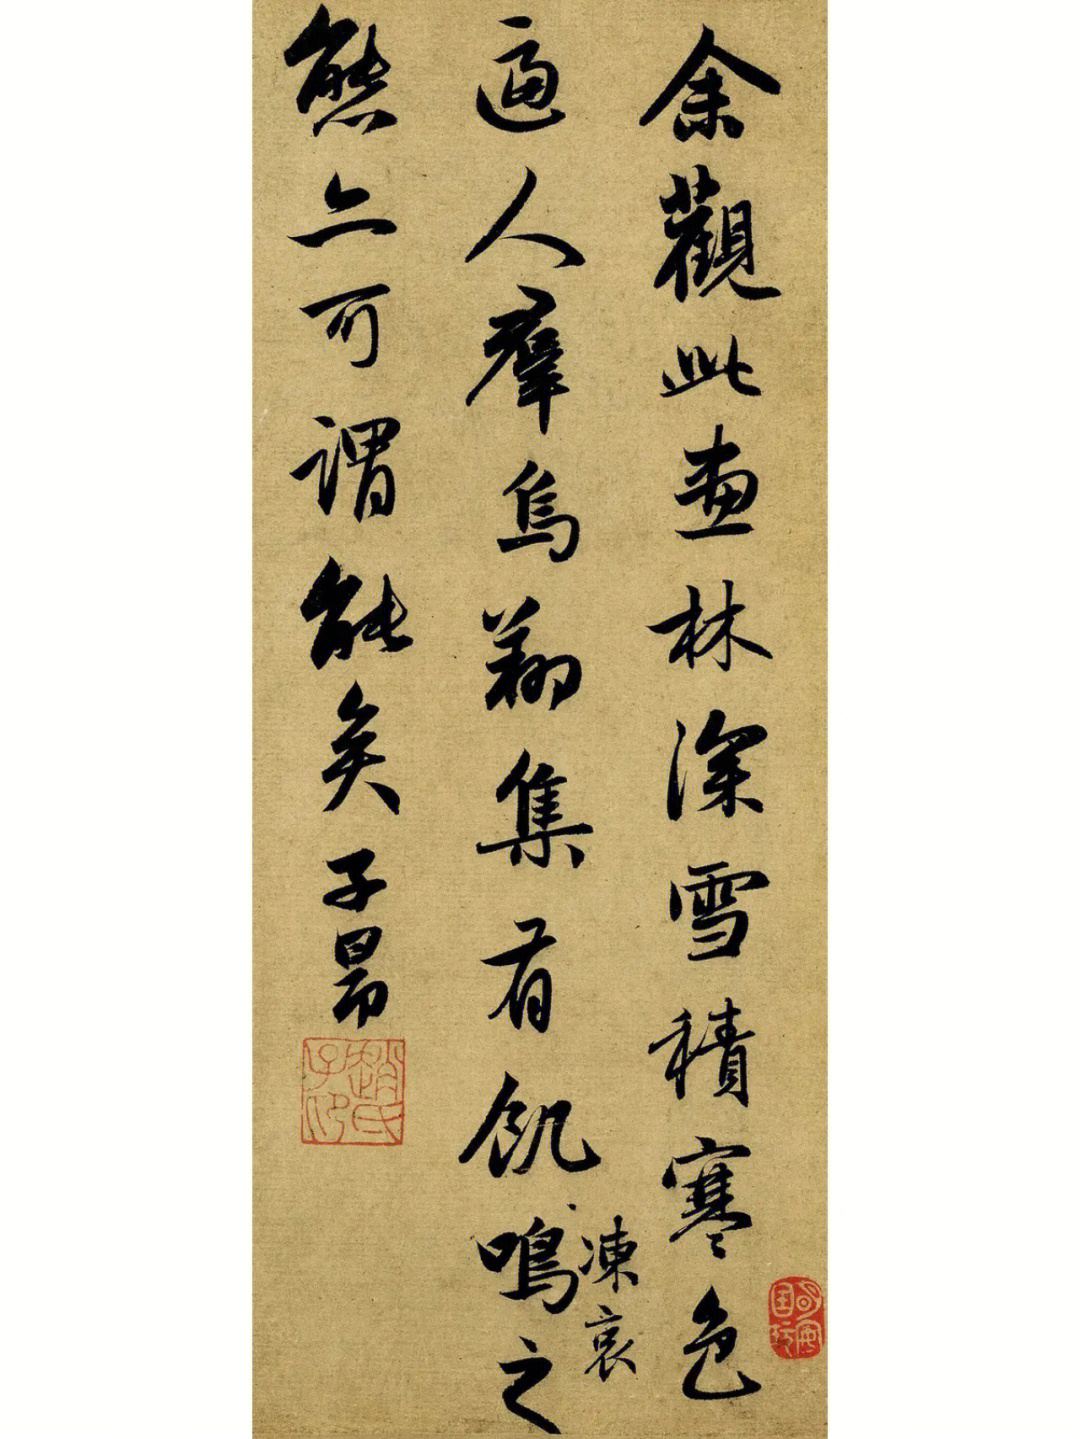 余觀此畫林深雪積寒色
逼人羣烏翔集有飢鳴之
凍哀
態亦可謂能矣子昂
趙氏子印